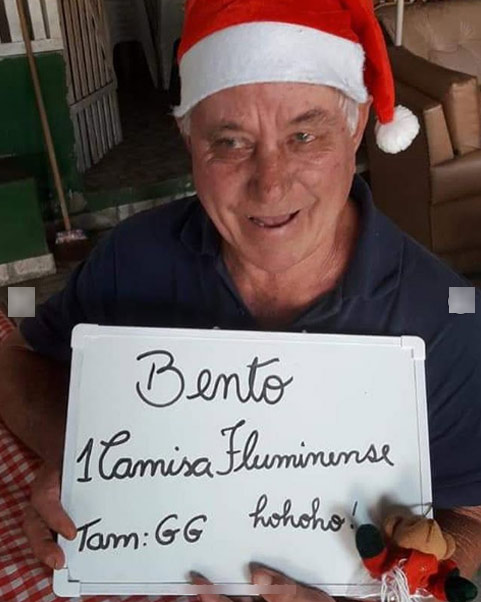 Bento
1 Camisa Fluminense
Tam: GG hohoho!